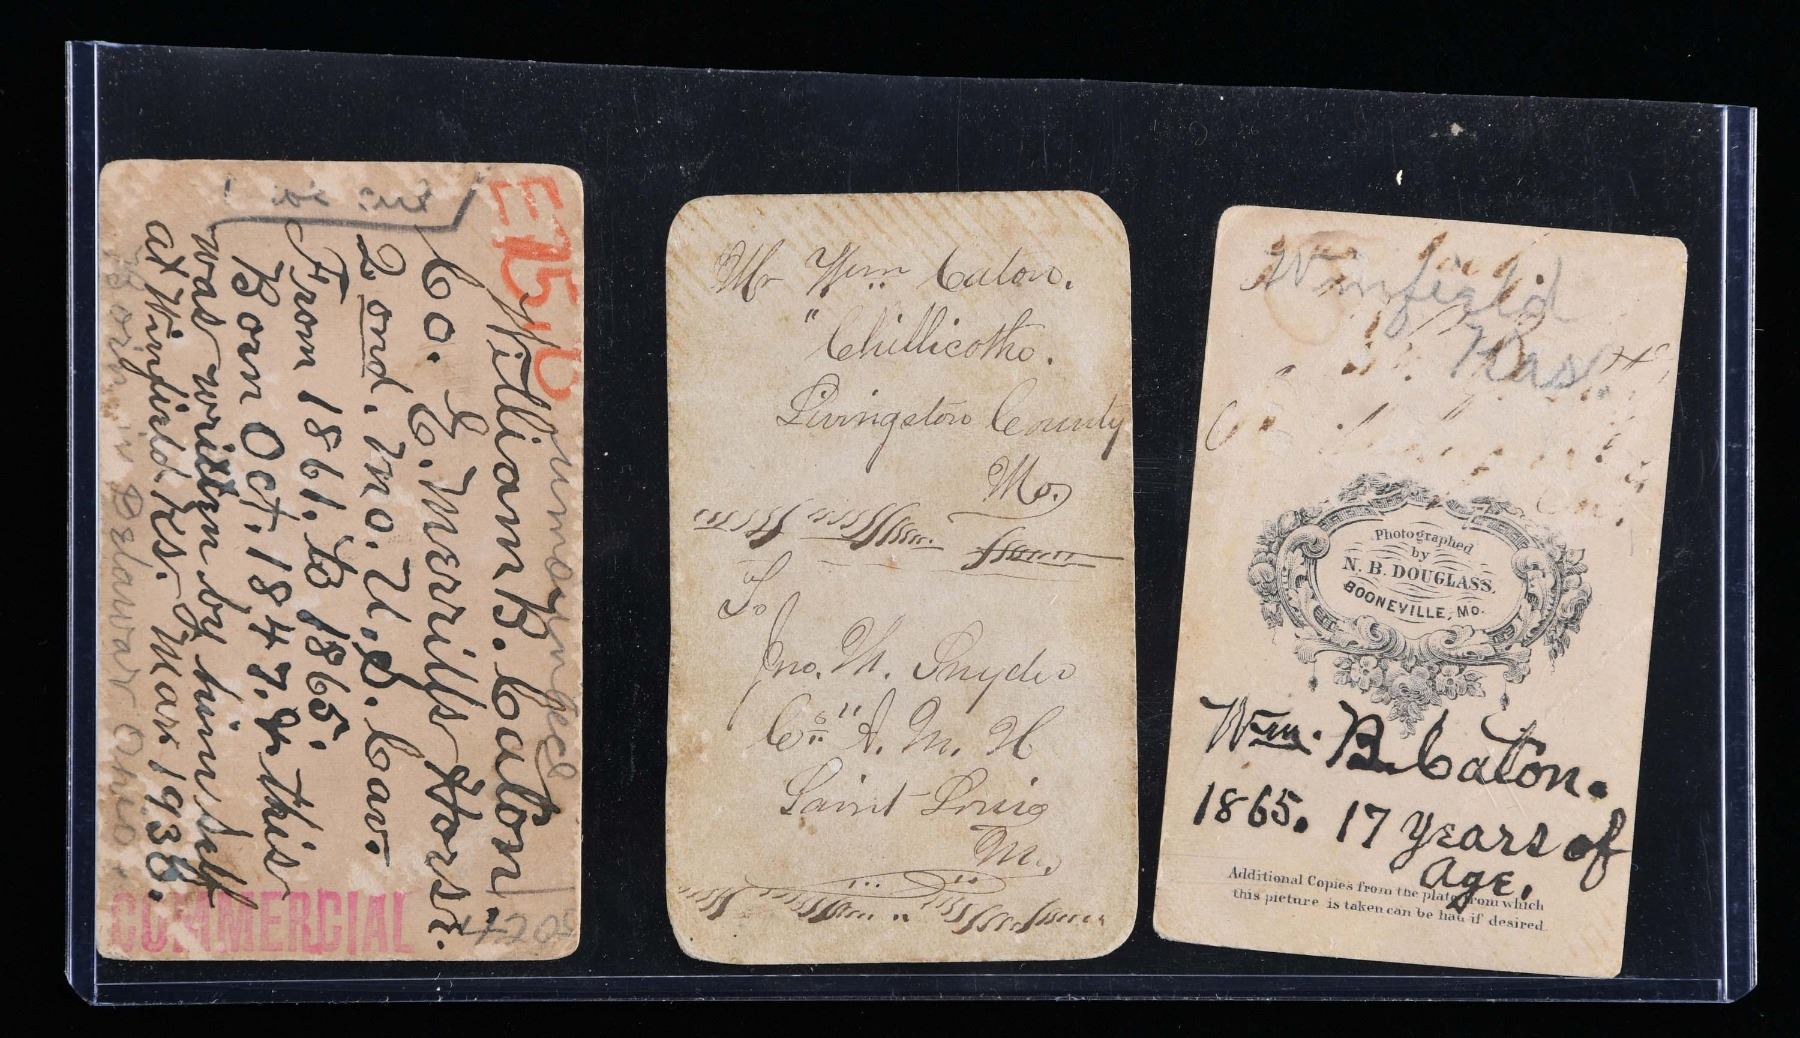 William B. Caton.
Co. E. Merrills Horse.
2ond. Mo. U.S. Cav.
From 1861. to 1865.
Born Oct. 1847. & this
was writen by himself
at Winfield Ks. Mar. 1936.
Born in Delawar Ohio.
COMMERCIAL
Mr Wm Caton.
" Chillicothe.
Livingston County
Mo.
To
Jno. M. Snyder
Co "A. M. H
Saint Louis
Mo.
Winfield
Kas.
Photographed
by
N. B. DOUGLASS,
BOONEVILLE, Mo.
Wm. B. Caton.
1865. 17 years of
Age.
Additional Copies from the plate from which
this picture is taken can be had if desired.